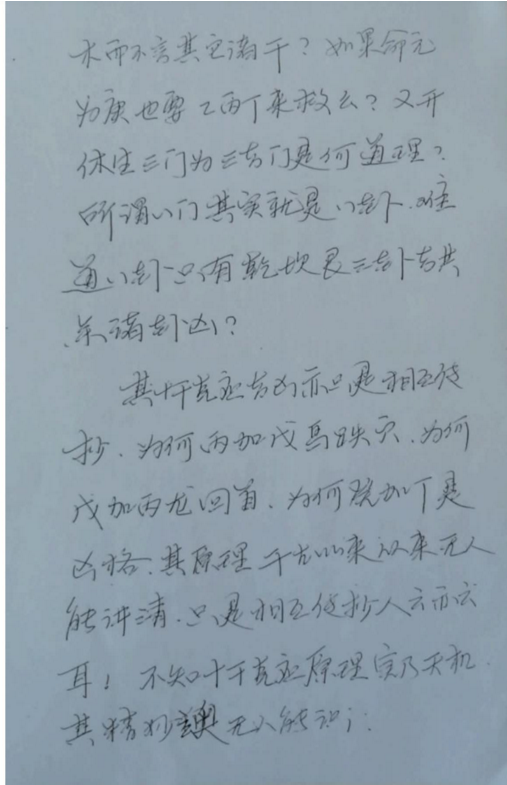 求而不言其它诸干？如果命元
为庚也要乙丙丁来救么？又开
休生三门为三吉门是何道理？
所谓八门其实就是八卦．难
道八卦只有乾坎艮三卦吉其
余诸卦凶？
其十干克应吉凶亦只是相互传
抄．为何丙加戊鸟跌穴．为何
戊加丙龙回首．为何癸加丁是
凶格．其原理千古以来从来无人
能讲清．只是相互传抄人云亦云
耳！不知十干克应原理实乃天机．
其精妙奥无人能识；